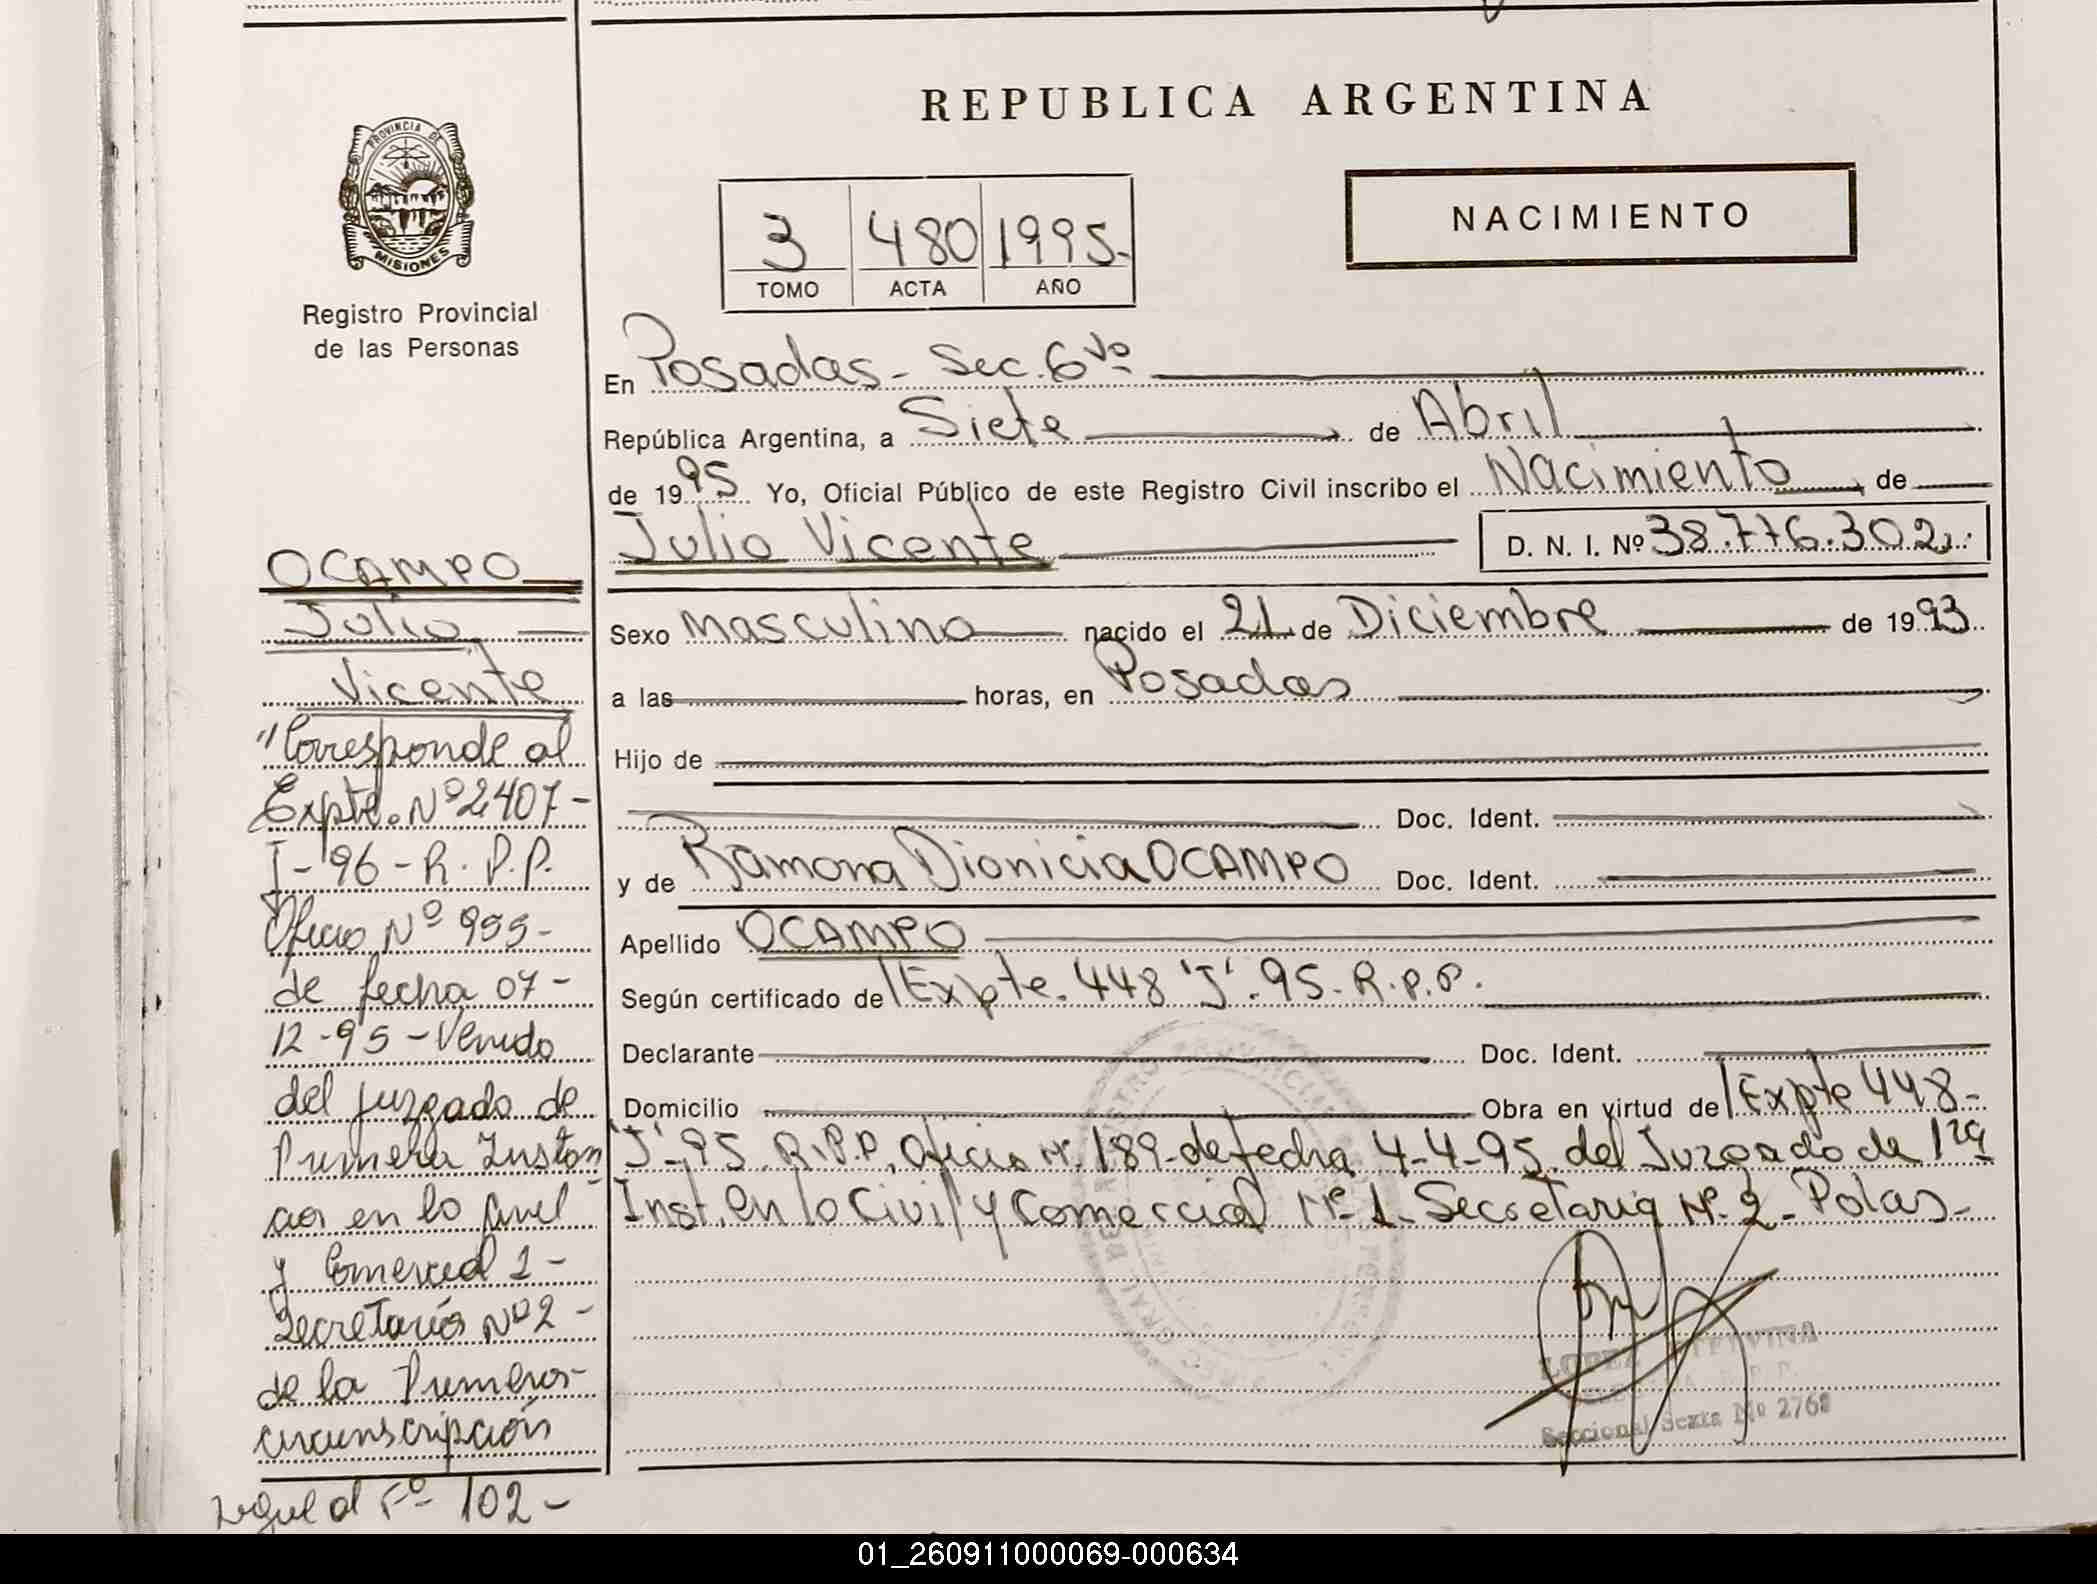 REPUBLICA ARGENTINA
NACIMIENTO
PROVINCIA DE
MISIONES
Registro Provincial
de las Personas
3 480 1995-
TOMO ACTA AÑO
En Posadas - Sec. 6ta
República Argentina, a Siete de Abril
de 1995 Yo, Oficial Público de este Registro Civil inscribo el Nacimiento de
Julio Vicente D. N. I. Nº 38.776.302
Sexo Masculino nacido el 21 de Diciembre de 1993
a las horas, en Posadas
Hijo de
Doc. Ident.
y de Ramona Dionicia OCAMPO Doc. Ident.
Apellido OCAMPO
Según certificado de Expte. 448 "J". 95. R.P.P.
Declarante Doc. Ident.
Domicilio Obra en virtud de Expte 448-
"J"-95 R.P.P. Oficio Nº 189 de fecha 4-4-95 del Juzgado de 1ra
Inst. en lo Civil y Comercial Nº 1- Secretaria Nº 2- Pdas-
LOPEZ
Seccional Sexta Nº 2768
OCAMPO
Julio
Vicente
"Corresponde al
Expte. Nº 2407-
J-96-R.P.P.
Oficio Nº 955-
de fecha 07-
12-95-Venido
del juzgado de
Primera Instan
cia en lo Civil
y Comercial 1-
Secretaría Nº 2-
de la Primera
circunscripción
Fº 102-
01_260911000069-000634